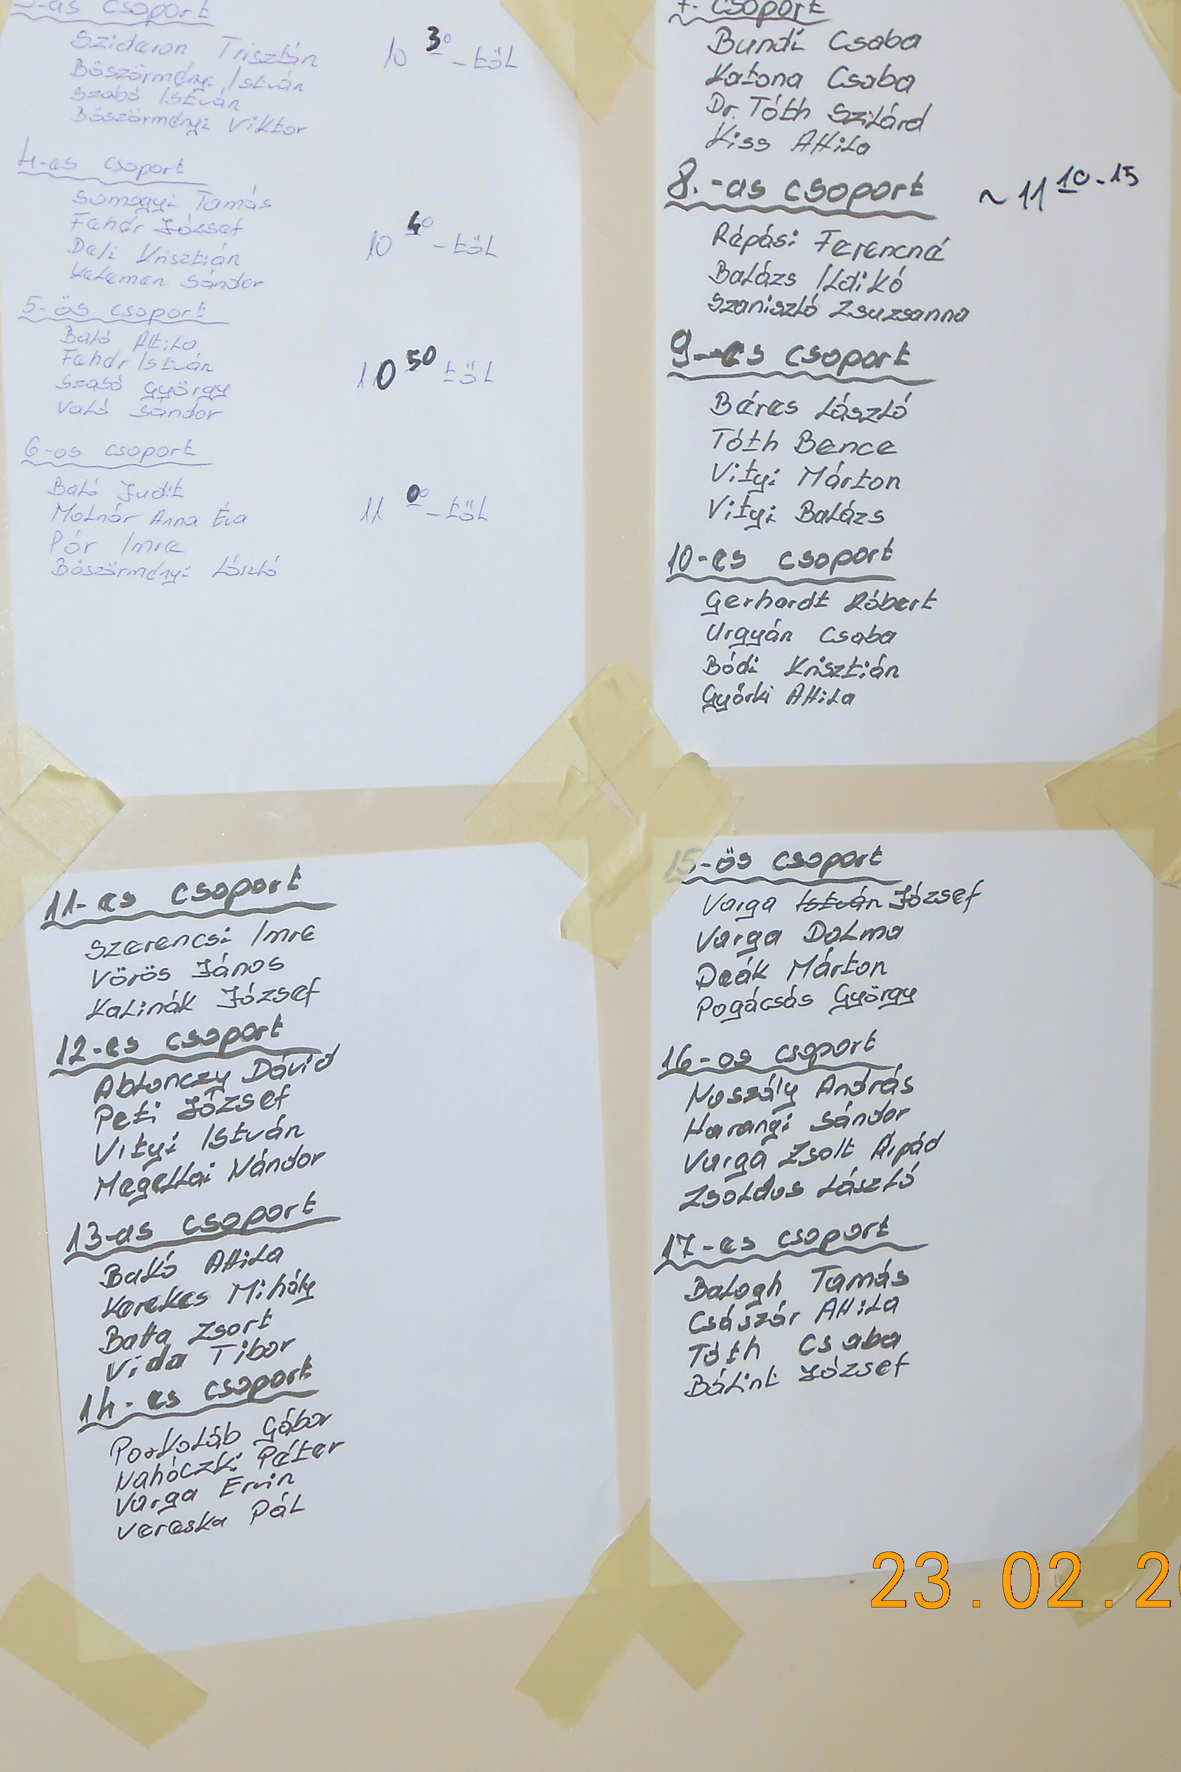 3-as csoport
Szideron Trisztán 10 30 -tól
Böszörményi István
Szabó István
Böszörményi Viktor
4-es csoport
Somogyi Tamás
Fehér József 10 40 -től
Deli Krisztián
Kelemen Sándor
5-ös csoport
Bakó Attila
Fehér István
Szabó György 10 50 -től
Vakó Sándor
6-os csoport
Bakó Judit
Molnár Anna Éva 11 00 -től
Pór Imre
Böszörményi László
7. csoport
Bundi Csaba
Katona Csaba
Dr. Tóth Szilárd
Kiss Attila
8.-as csoport ~ 11 10-15
Répási Ferencné
Balázs Ildikó
Szaniszló Zsuzsanna
9-es csoport
Béres László
Tóth Bence
Vityi Márton
Vityi Balázs
10-es csoport
Gerhardt Róbert
Urgyán Csaba
Bódi Krisztián
Györki Attila
11-es csoport
Szerencsi Imre
Vörös János
Kalinák József
12-es csoport
Ablonczy Dávid
Peti József
Vityi István
Megellai Nándor
13-as csoport
Bakó Attila
Kerekes Mihály
Batta Zsort
Vida Tibor
14-es csoport
Porkoláb Gábor
Nahóczki Péter
Varga Ervin
Vereska Pál
15-ös csoport
Varga István József
Varga Dalma
Deák Márton
Pogácsás György
16-os csoport
Noszály András
Harangi Sándor
Varga Zsolt Árpád
Zsoldos László
17-es csoport
Balogh Tamás
Császár Attila
Tóth Csaba
Bálint József
23.02.20